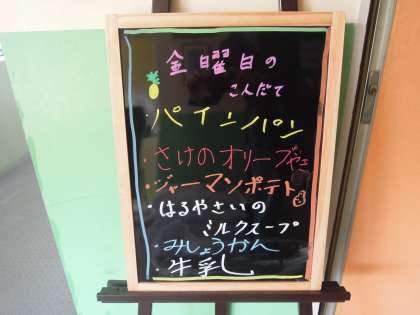 金曜日の
こんだて
・パインパン
・さけのオリーブやき
・ジャーマンポテト
・はるやさいの
ミルクスープ
・みしょうかん
・牛乳